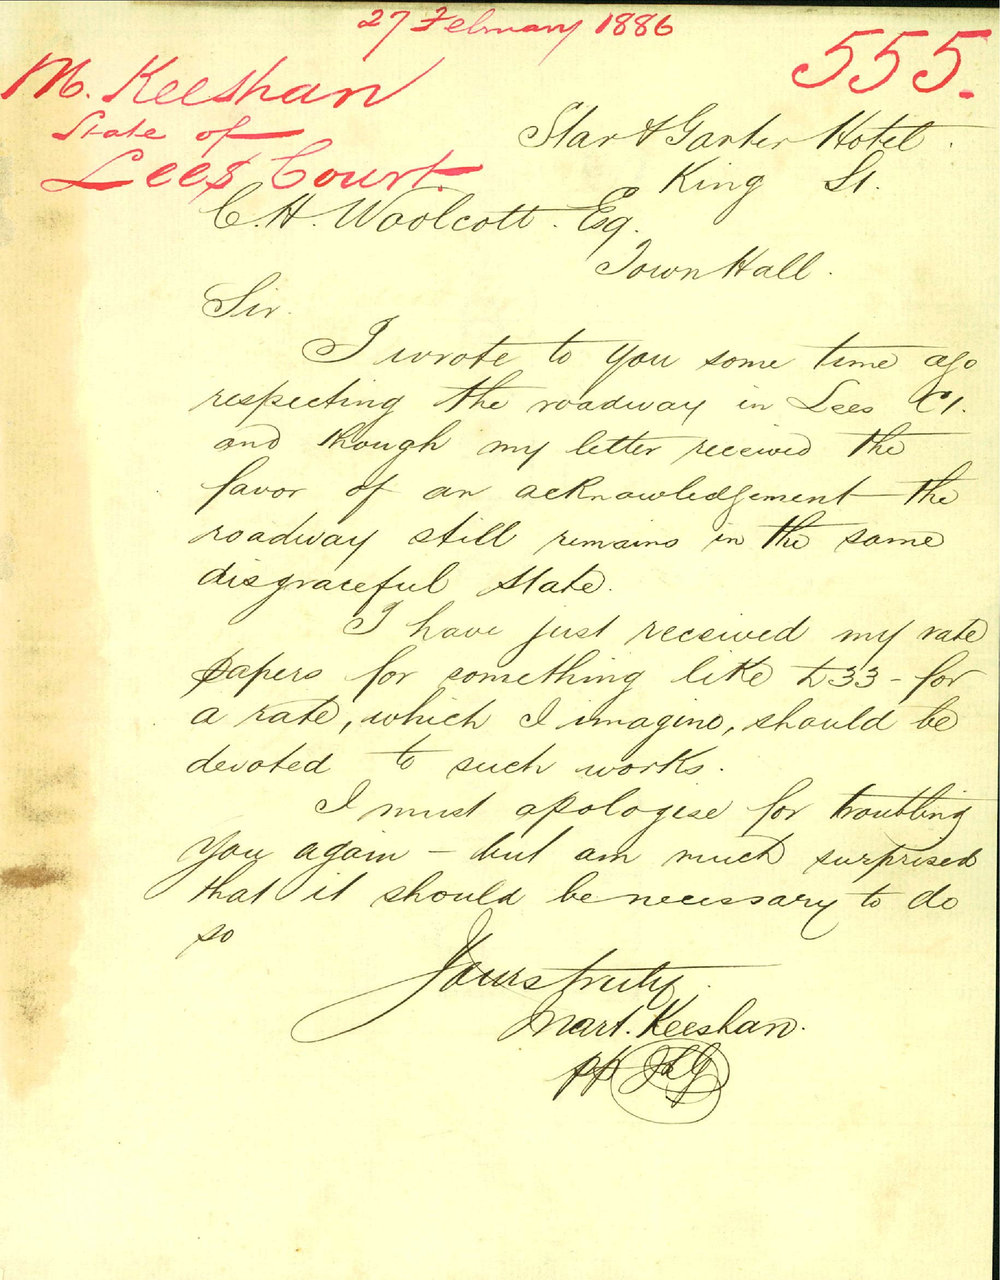 27 February 1886
555.
M. Keeshan
State of
Lees Court
Star & Garter Hotel.
King St.
C. H. Woolcott. Esq.
Town Hall.
Sir.
I wrote to you some time ago
respecting the roadway in Lees Ct.
and though my letter received the
favor of an acknowledgement – the
roadway still remains in the same
disgraceful state.
I have just received my rate
papers for something like £33 - for
a rate, which I imagine, should be
devoted to such works.
I must apologise for troubling
you again – but am much surprised
that it should be necessary to do
so
Yours truly.
Mart. Keeshan.
pp